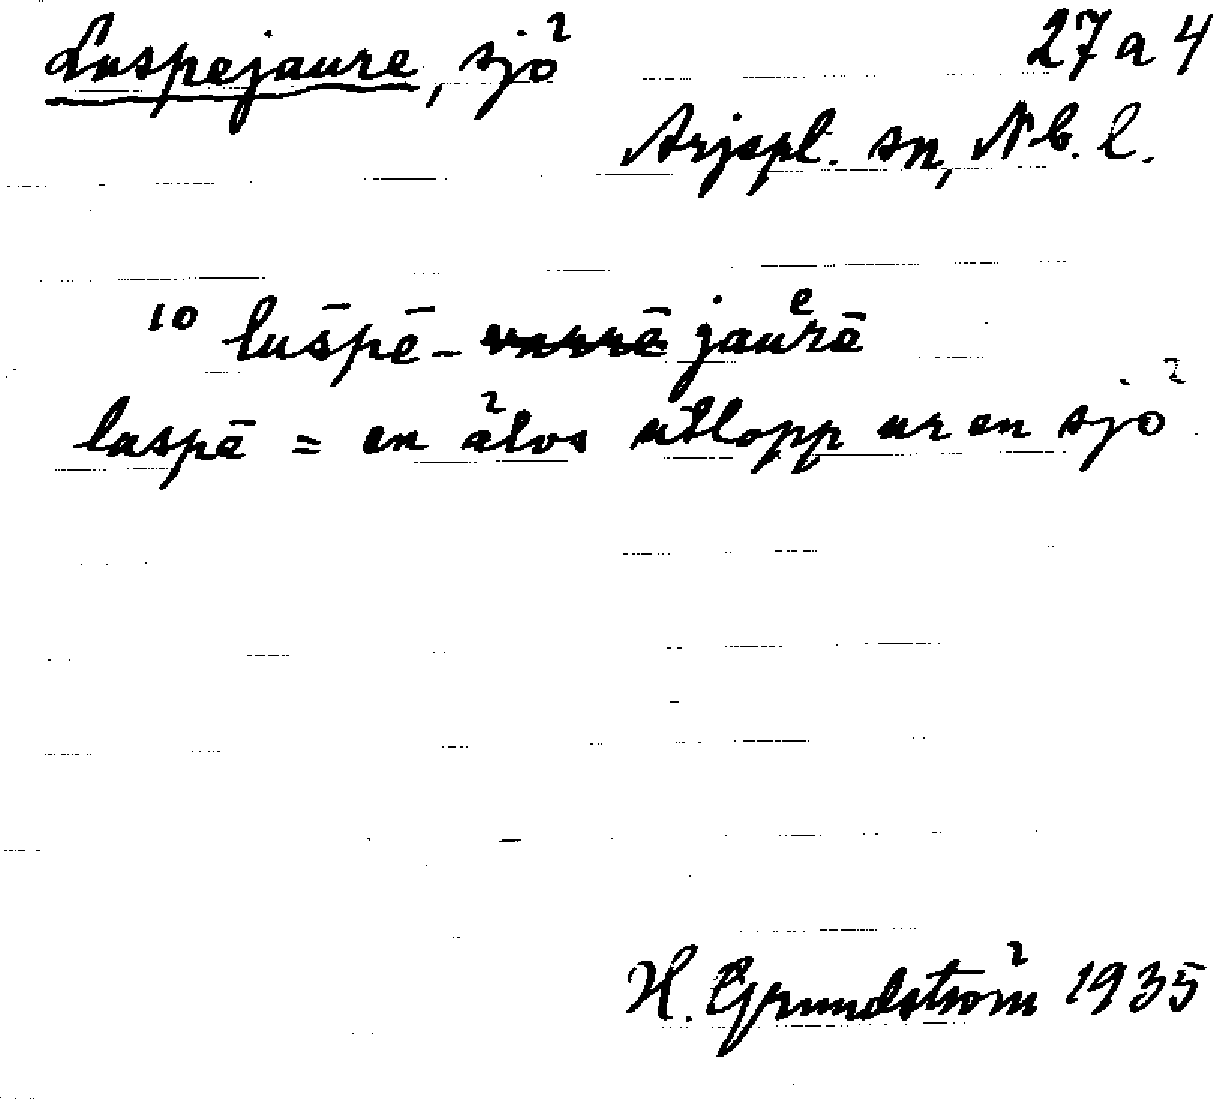 Luspejaure, sjö 27 a 4
Arjepl. sn, Nb. l.
10 lušpē- jaurē
luspē = en älvs utlopp ur en sjö
H. Grundström 1935